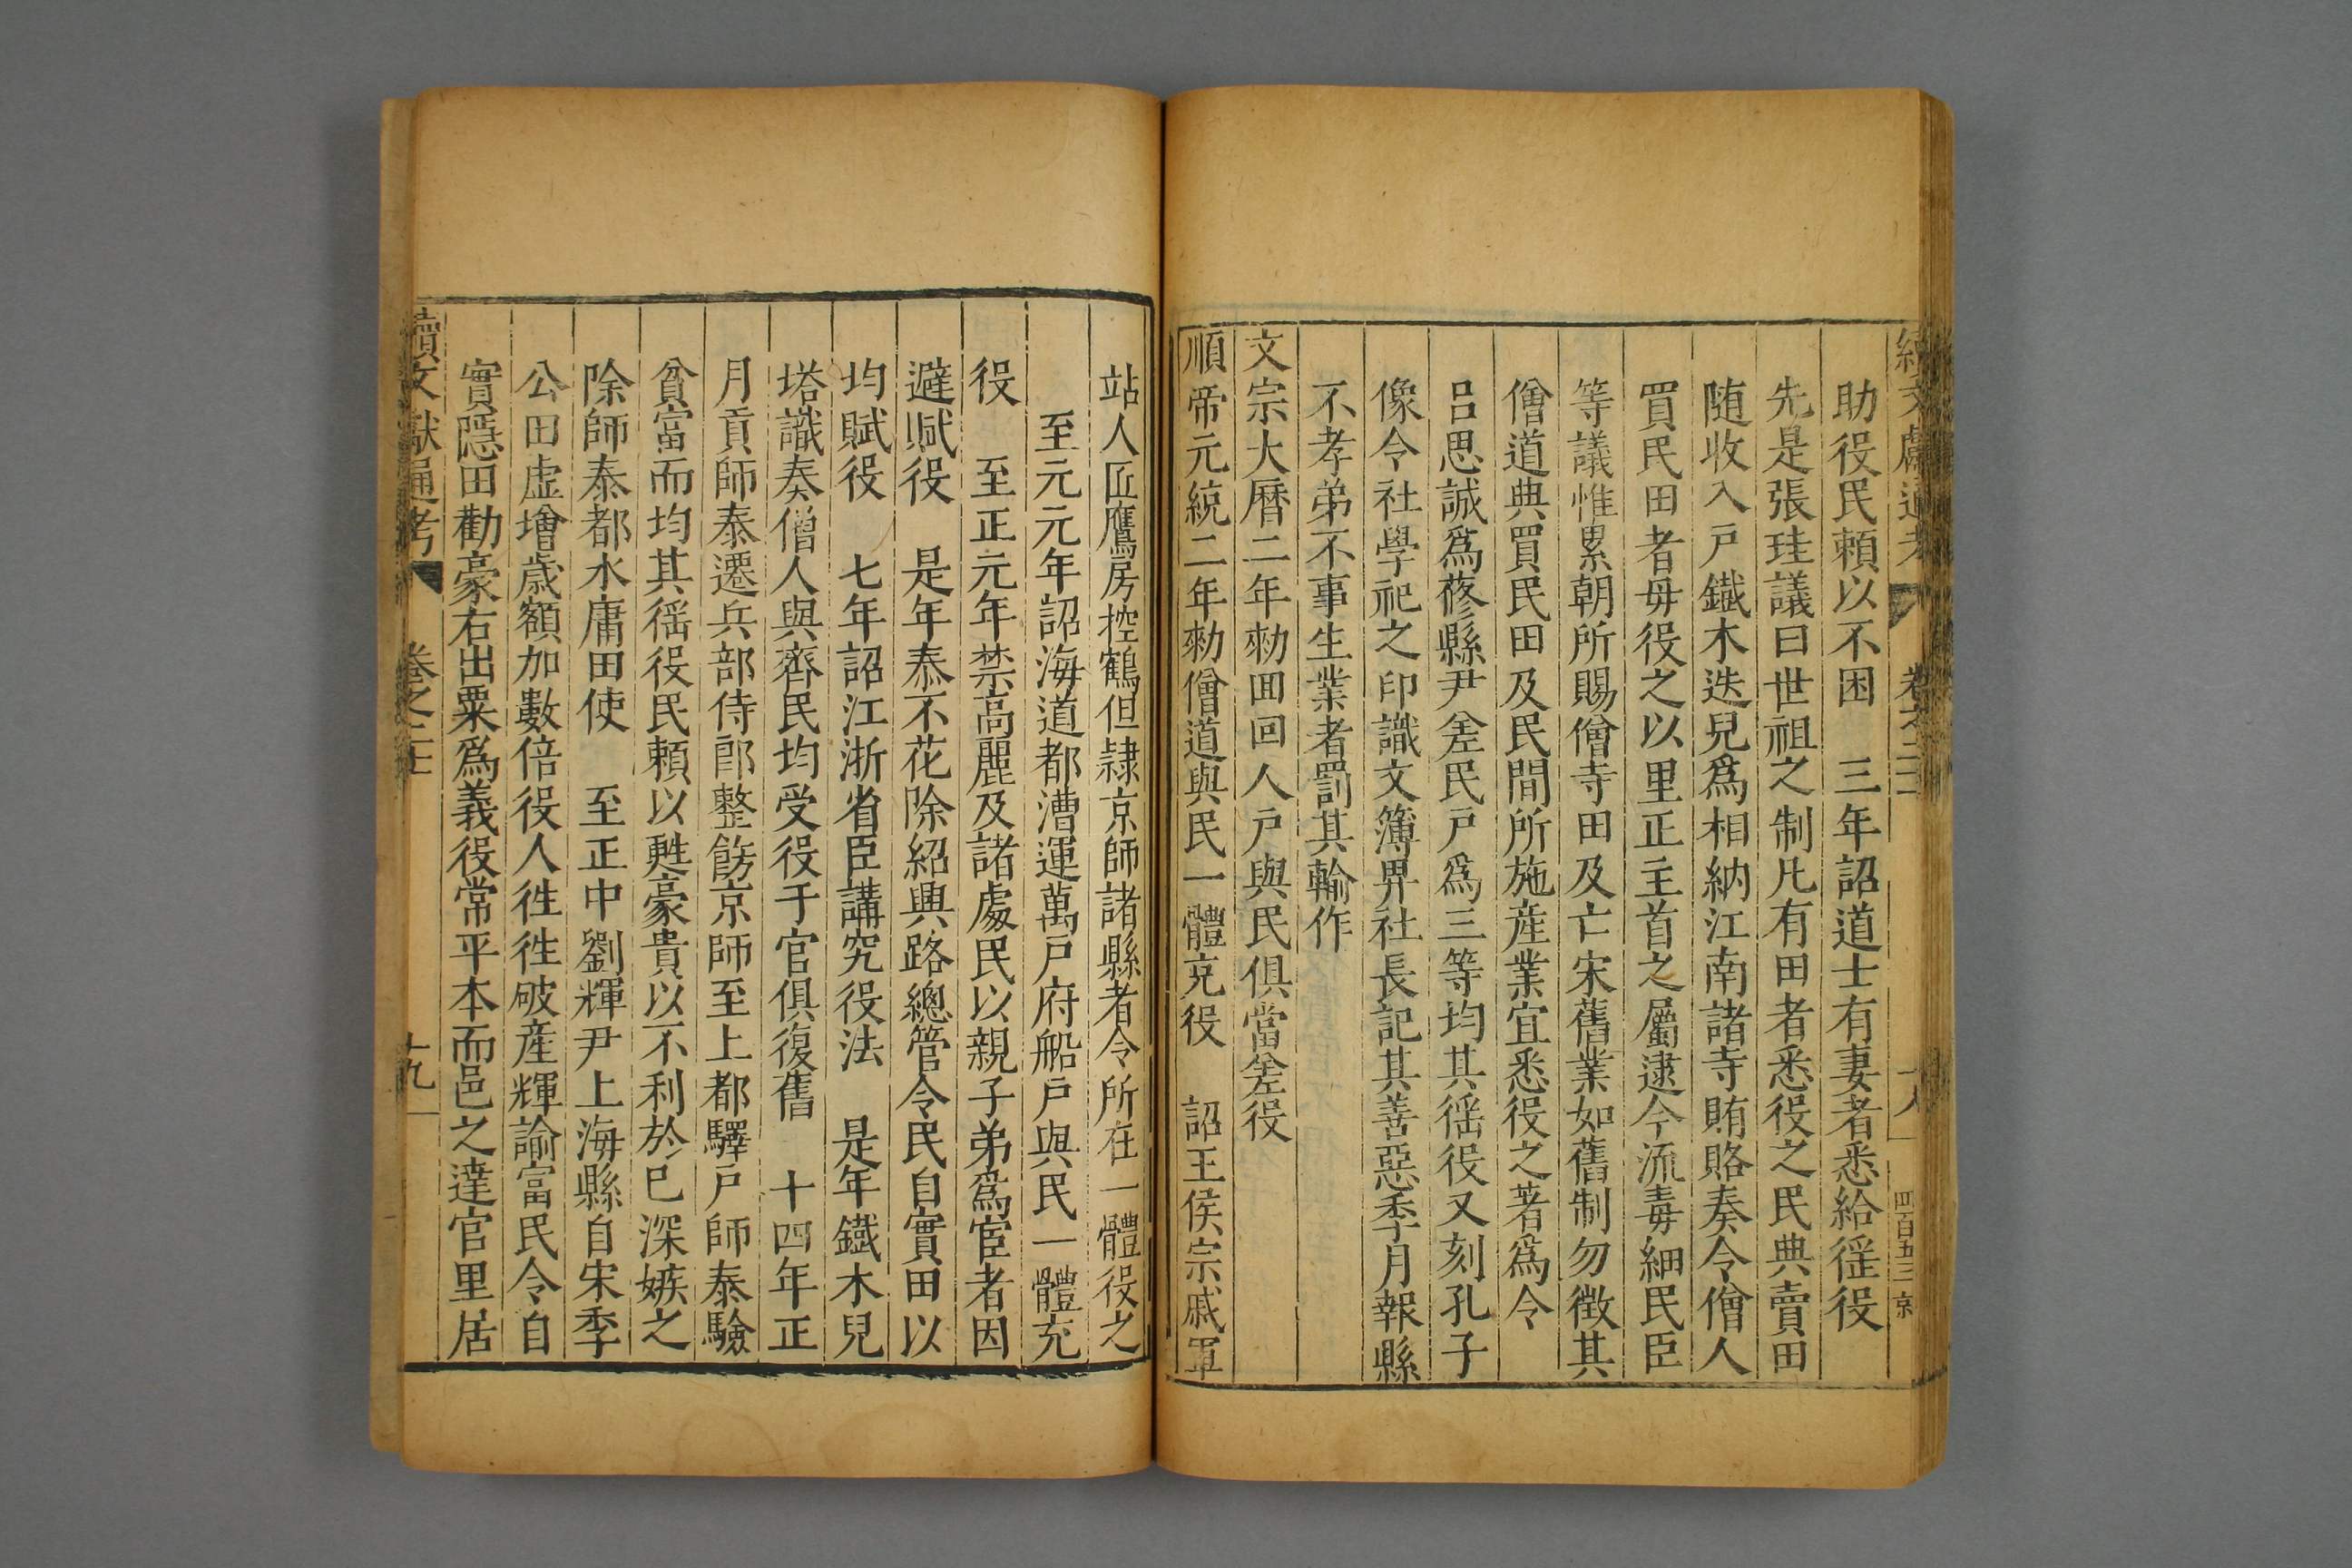 助役民頼以不困　三年詔道士有妻者悉給徭役
先是張珪議曰世祖之制凡有田者悉役之民典賣田
随收入戸鐵木迭兒爲相納江南諸寺賄賂奏令僧人
買民田者毋役之以里正主首之屬逮今流毒細民臣
等議惟累朝所賜僧寺田及亡宋舊業如舊制勿徴其
僧道典買民田及民間所施産業宜悉役之著爲令
吕思誠爲蓚縣尹差民戸爲三等均其徭役又刻孔子
像令社學祀之印識文簿畀社長記其善惡季月報縣
不孝弟不事生業者罰其輸作
文宗大曆二年勑囬回人戸與民俱當差役
順帝元統二年勑僧道與民一體充役　詔王侯宗戚軍
站人匠鷹房控鶴但隷京師諸縣者令所在一體役之
至元元年詔海道都漕運萬戸府船戸與民一體充
役　至正元年禁高麗及諸處民以親子弟爲宦者因
避賦役　是年泰不花除紹興路總管令民自實田以
均賦役　七年詔江浙省臣講究役法　是年鐵木兒
塔識奏僧人與齊民均受役于官俱復舊　十四年正
月貢師泰遷兵部侍郎整飭京師至上都驛戸師泰驗
貧富而均其徭役民頼以甦豪貴以不利於已深嫉之
除師泰都水庸田使　至正中劉輝尹上海縣自宋季
公田虚增歲額加數倍役人徃徃破産輝諭富民令自
實隱田勸豪右出粟爲義役常平本而邑之達官里居
續文獻通考　卷之二十　十九